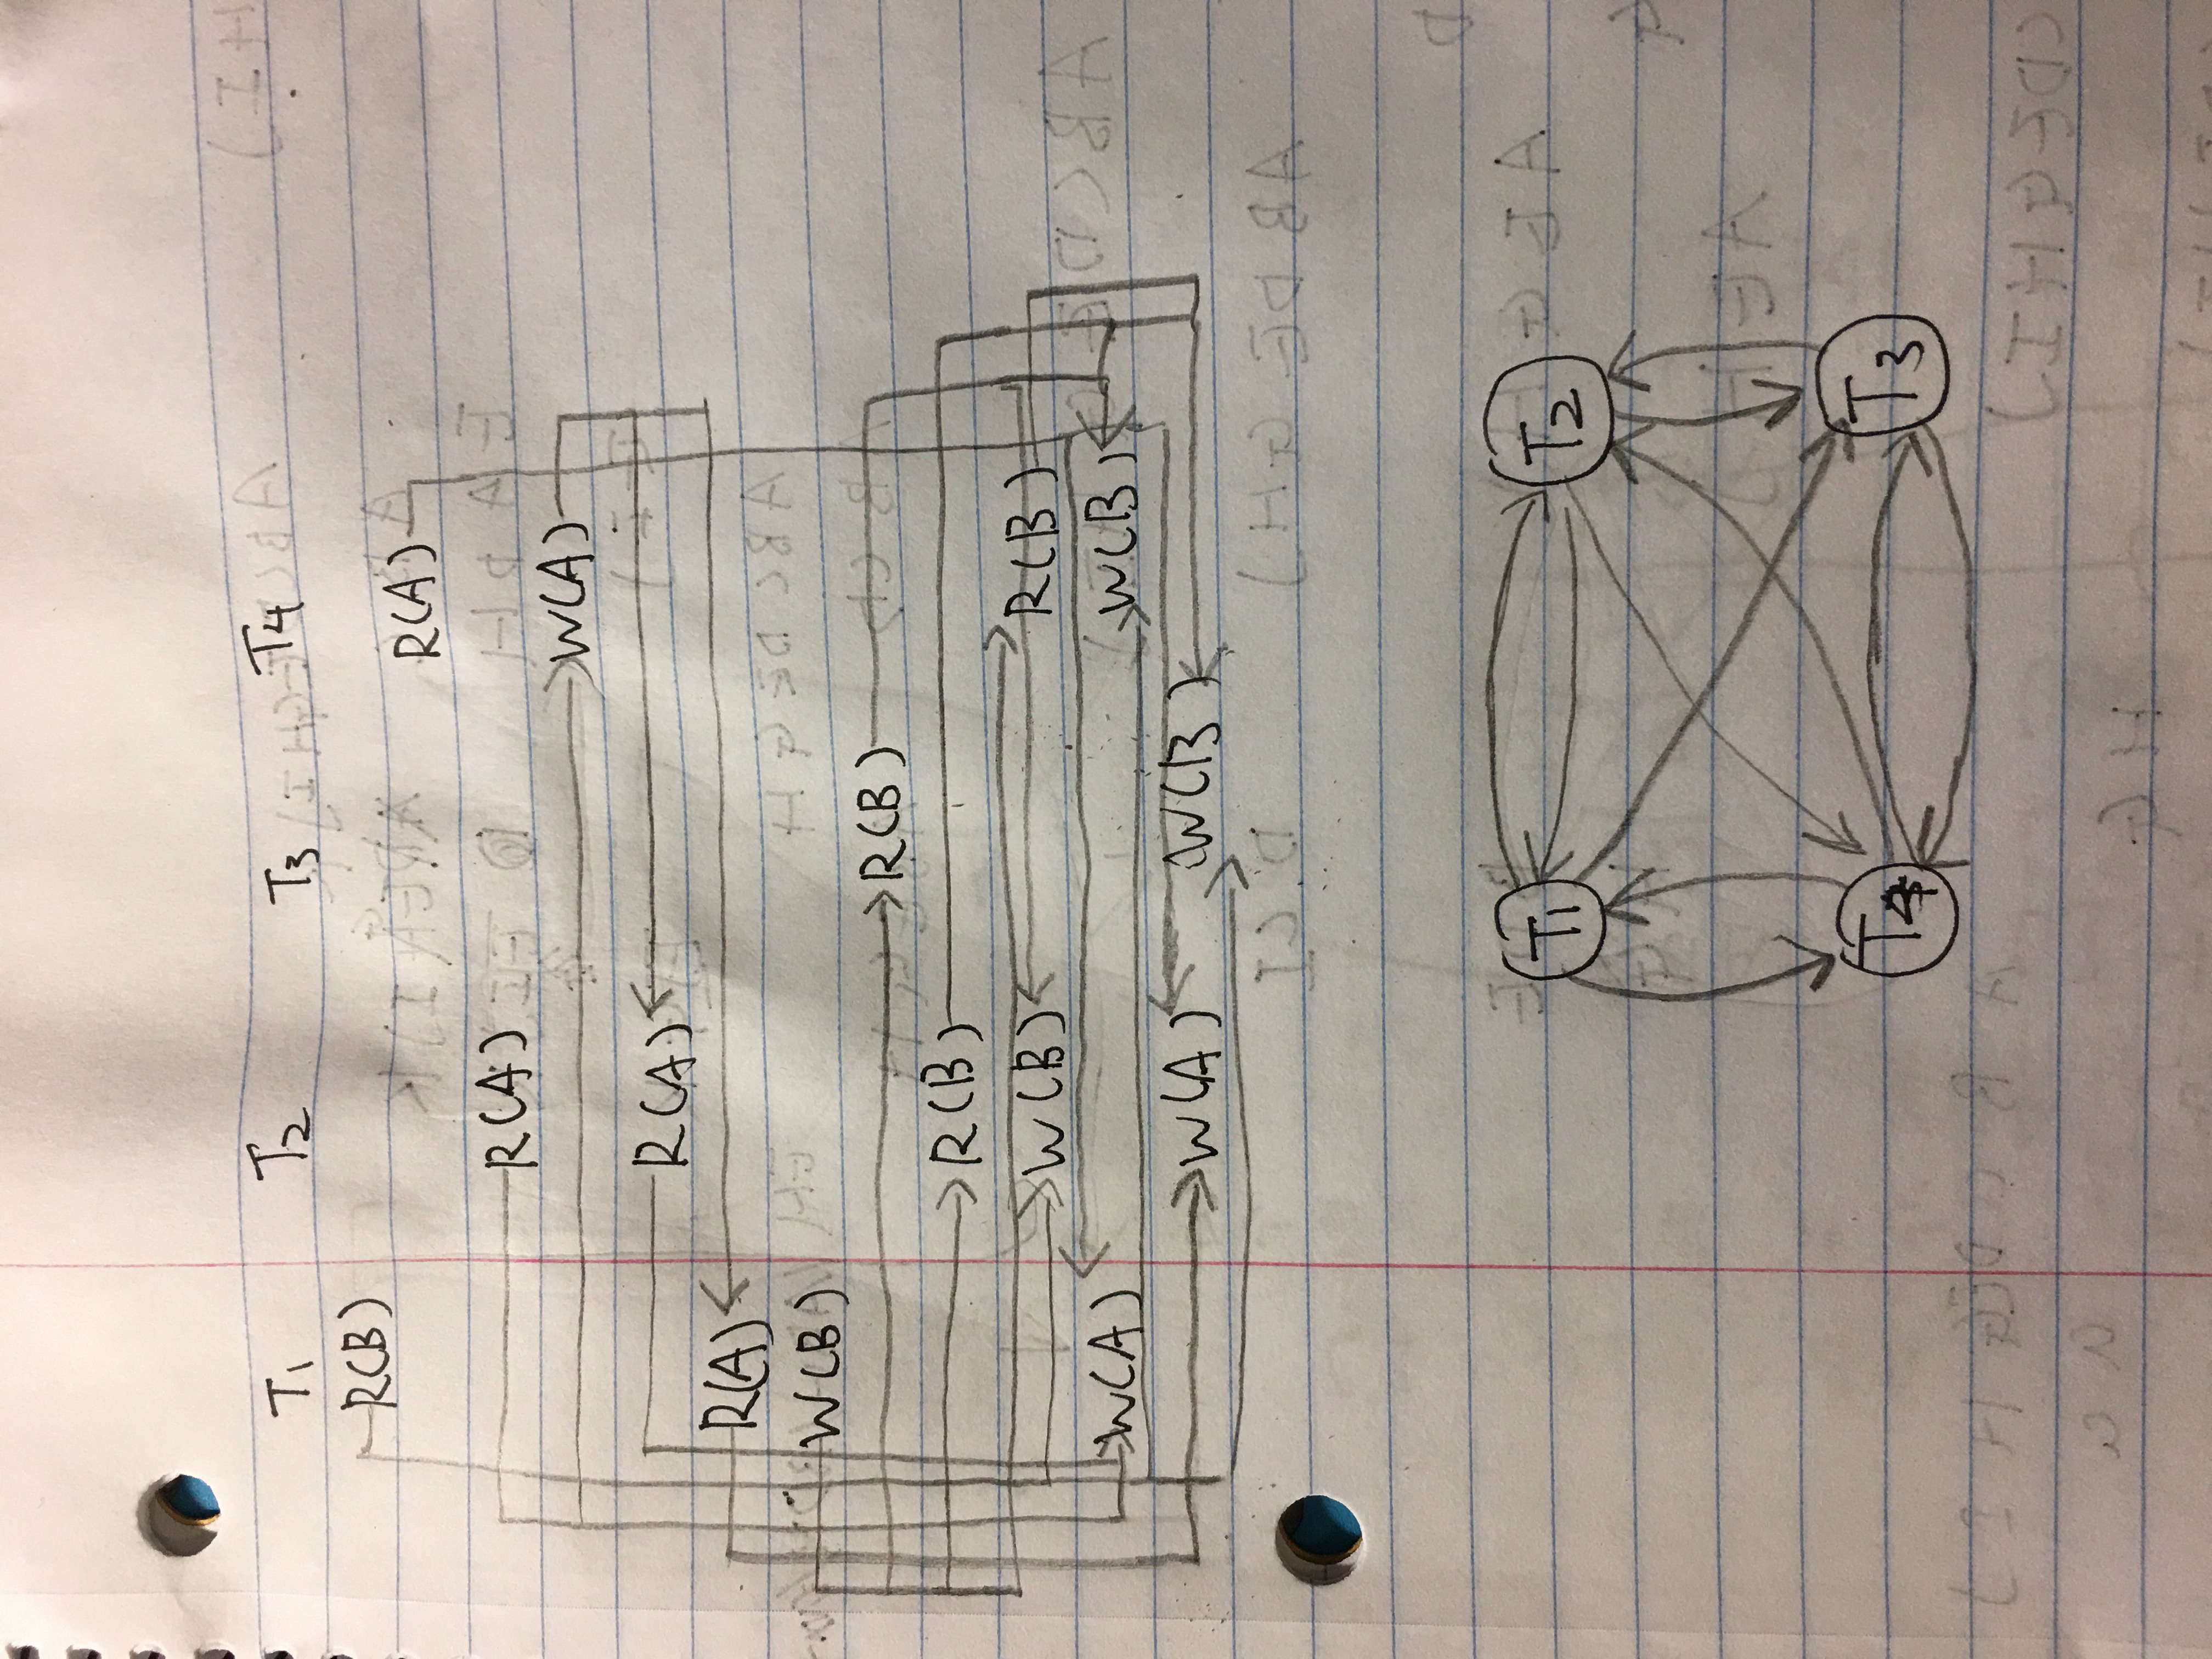 T1 T2 T3 T4
R(B)
R(A)
R(A)
W(A)
R(A)
R(A)
W(B)
R(B)
R(B)
W(B) R(B)
W(A) W(B)
W(A) W(B)
T1 T2
T4 T3